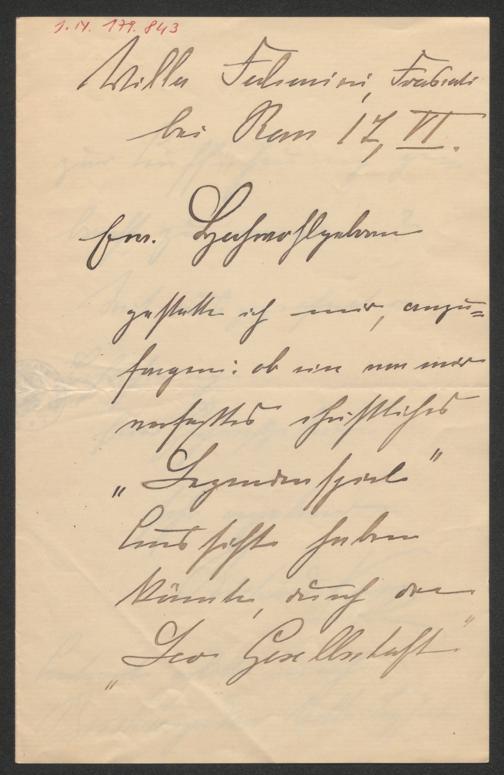 I.N. 179.843
Villa Falconieri, Frascati
bei Rom 17, VI.
Ew. Hochwohlgeboren
gestatte ich mir, anzu=
fragen: ob ein von mir
verfaßtes christliches
„Legendenspiel"
Aussicht haben
könnte, durch die
„Leo Gesellschaft"